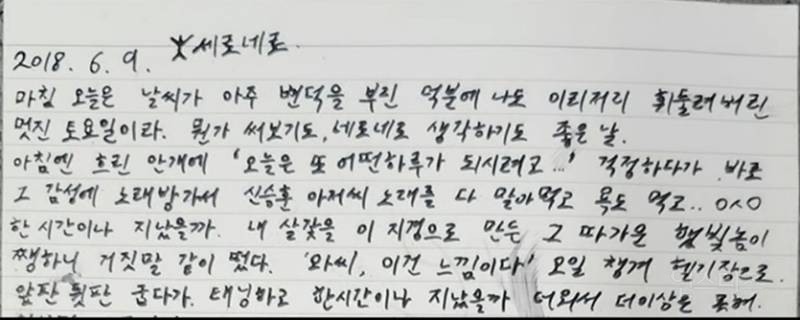 2018. 6. 9. 숯세로네로.
마침 오늘은 날씨가 아주 변덕을 부린 덕분에 나도 이리저리 휘둘려버린
멋진 토요일이라. 뭔가 써보기도, 네로네로 생각하기도 좋은 날.
아침엔 흐린 안개에 '오늘은 또 어떤하루가 되시려고...' 걱정하다가 바로
그 감성에 노래방가서 신승훈 아저씨 노래를 다 말아먹고 욕도 먹고.. ㅇㅅㅇ
한 시간이나 지났을까. 내 살갗을 이 지경으로 만든 그 따가운 햇빛놈이
쨍하니 거짓말 같이 떴다. '와씨, 이건 느낌이다!' 오일 챙겨 헬기장으로.
앞판 뒷판 굽다가. 태닝하고 한시간이나 지났을까 더워서 더이상은 못해.